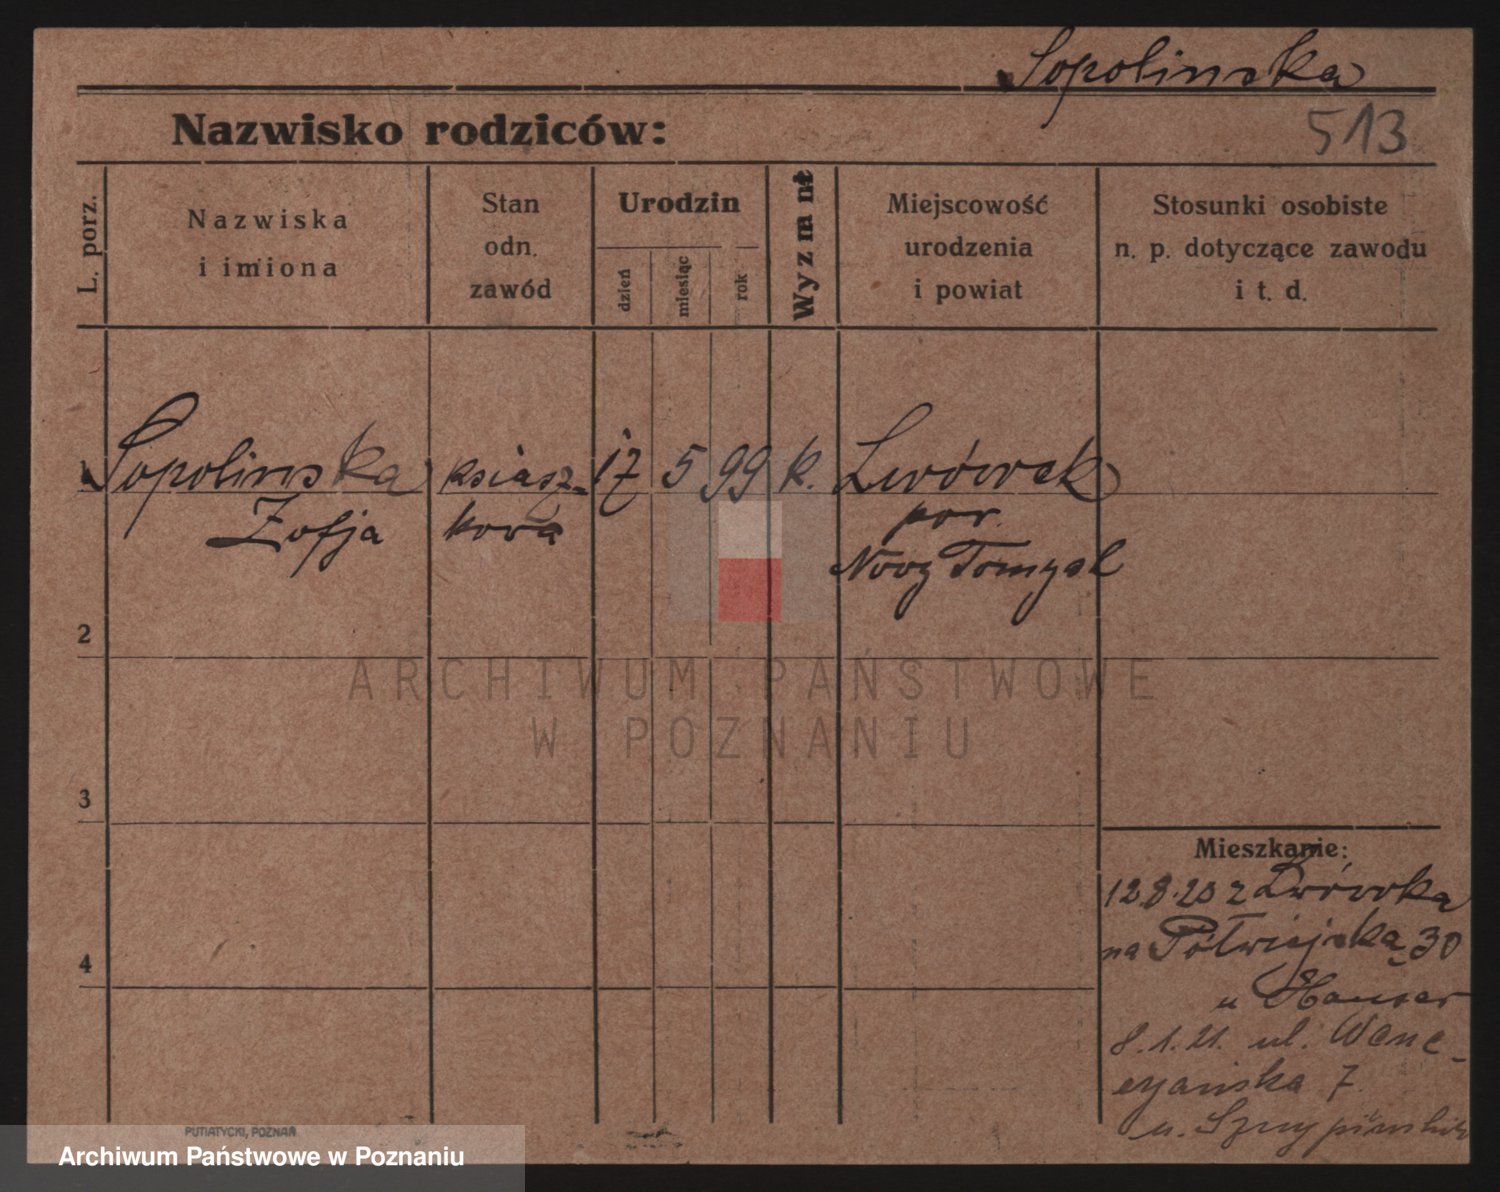 Sopolinska
Nazwisko rodziców:
513
L. porz.
Nazwiska
i imiona
Stan
odn.
zawód
Urodzin
dzień
miesiąc
rok
Wyznanie
Miejscowość
urodzenia
i powiat
Stosunki osobiste
n. p. dotyczące zawodu
i t. d.
1
Sopolinska
Zofja
ksiasz-
kowa
17 5 99
k.
Lwówek
pow.
Nowy Tomysl
2
3
4
Mieszkanie:
12.8.20 z Lwówka
na Półwiejska 30
u
8.1.21. ul. Wene-
cyańska 7
u.
ARCHIWUM PAŃSTWOWE
W POZNANIU
PUTIATYCKI, POZNAŃ
Archiwum Państwowe w Poznaniu